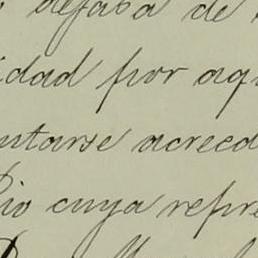 dejaba de
idad por aqu
ntarse acreed
Rio cuya repre